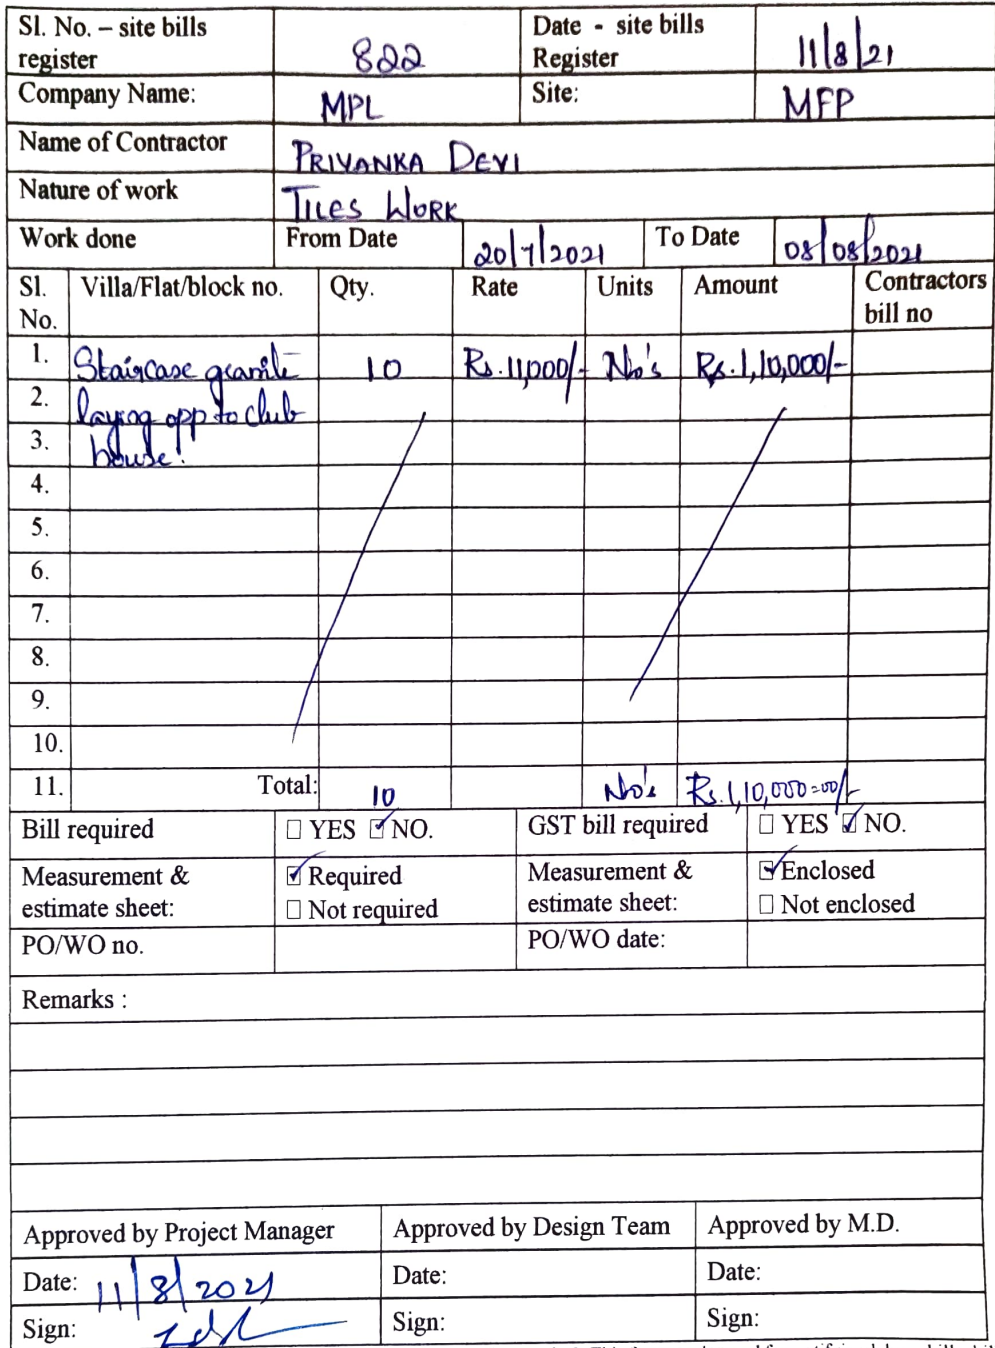 Sl. No. – site bills register 822 Date - site bills Register 11/8/21
Company Name: MPL Site: MFP
Name of Contractor PRIYANKA DEVI
Nature of work TILES WORK
Work done From Date 20/7/2021 To Date 08/08/2021
Sl. No. Villa/Flat/block no. Qty. Rate Units Amount Contractors bill no
1. Staircase granite 10 Rs. 11,000/- No's Rs. 1,10,000/-
2. laying opp to club
3. house!
4.
5.
6.
7.
8.
9.
10.
11. Total: 10 No's Rs. 1,10,000=00/-
Bill required ☐ YES ☑ NO. GST bill required ☐ YES ☑ NO.
Measurement & estimate sheet: ☑ Required ☐ Not required Measurement & estimate sheet: ☑ Enclosed ☐ Not enclosed
PO/WO no. PO/WO date:
Remarks :
Approved by Project Manager Approved by Design Team Approved by M.D.
Date: 11/8/2021 Date: Date:
Sign: Sign: Sign: